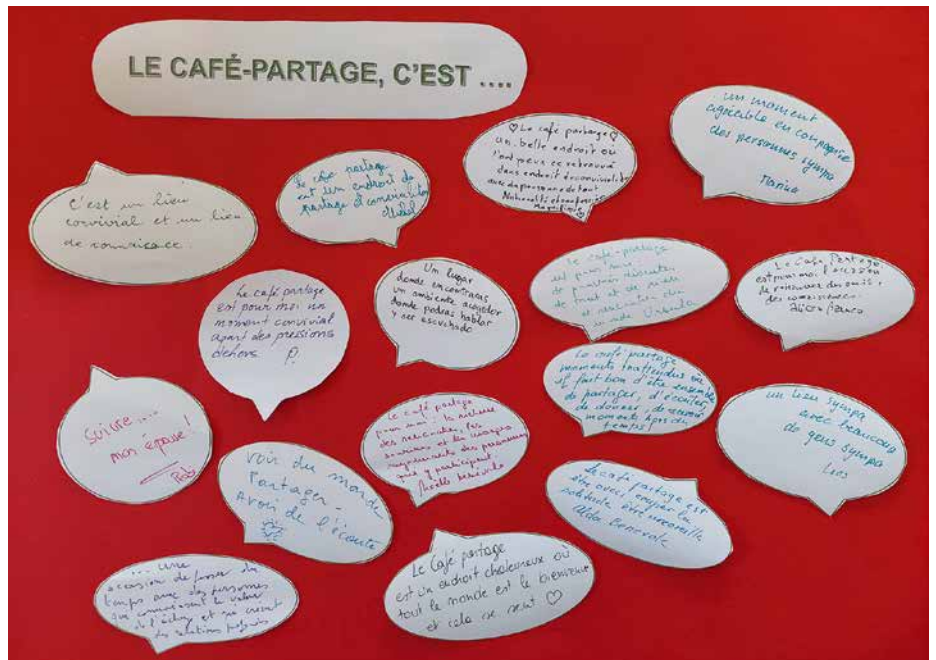 LE CAFÉ-PARTAGE, C'EST ....
C'est un lieu
convivial et un lieu
de
Le café partage
est un endroit de
partage et convivialité
♡ Le café partarge ♡
un belle endroit où
l'ont peux ce retrouvé
dans endroit de convivialité
avec des personne de tout
Magnifique
un moment
agréable en compagnie
des personnes sympa
Le café partage
est pour moi un
moment convivial
apart des pressions
dehors P.
Un lugar
donde encontraras
un ambiente acogedor
donde podras hablar
y ser escuchado
Le café-partage
est pour moi
de pouvoir discuter
de tout et de rien
et rencontrer du
monde Ursula
Le Café Partage,
est pour moi l'occasion
de retrouver des amis,
des
Suivre....
mon épouse!
Le café partage
pour moi: la richesse
des rencontres, les
sourires et les visages
des personnes
qui y participent.
bénévole
Le café partage
moments inattendus où
il fait bon d'être ensemble
de partager, d'écouter,
de donner, de recevoir
moments hors du
temps!
un lieu sympa
avec beaucoup
de gens sympa
Voir du monde
Partager -
Avoir de l'écoute
Le café partage est
être avec, rompre la
solitude être
Alda Benevole
... une
occasion de passer du
temps avec des personnes
qui connaissent la valeur
de l'échange et qui créent
des relations
Le Café partage
est un endroit chaleureux où
tout le monde est le bienvenue
et cela se sent ♡